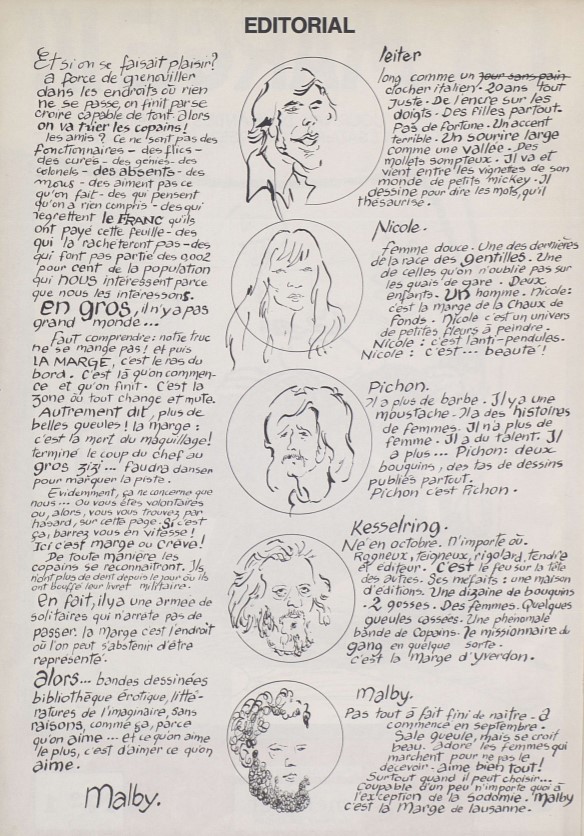 EDITORIAL
Et si on se faisait plaisir?
a force de grenouiller
dans les endroits où rien
ne se passe, on finit par se
croire capable de tout. alors
on va trier les copains!
les amis? Ce ne sont pas des
fonctionnaires - des flics -
des cures - des génies - des
colonels - des absents - des
mous - des aiment pas ce
qu'on fait - des qui pensent
qu'on a rien compris - des qui
regrettent le FRANC qu'ils
ont payé cette feuille - des
qui la rachèteront pas - des
qui font pas partie des 0,002
pour cent de la population
qui nous intéressent parce
que nous les intéressons.
en gros, il n'y a pas
grand monde...
Faut comprendre: notre truc
ne se mange pas! et puis
LA MARGE, c'est le ras du
bord. C'est là qu'on commen-
ce et qu'on finit. C'est la
zone où tout change et mute.
Autrement dit, plus de
belles gueules! la marge:
c'est la mort du maquillage!
terminé le coup du chef au
gros zizi... Faudra danser
pour marquer la piste.
Evidemment, ça ne concerne que
nous... Ou vous êtes volontaires
ou, alors, vous vous trouvez par
hasard, sur cette page. Si c'est
ça, barrez vous en vitesse!
Ici c'est marge ou crève!
De toute manière les
copains se reconnaitront. Ils
n'ont plus de dent depuis le jour où ils
ont bouffé leur livret militaire.
en fait, il y a une armée de
solitaires qui n'arrête pas de
passer. la marge c'est l'endroit
où l'on peut s'abstenir d'être
représenté.
alors... bandes dessinées
bibliothèque érotique, litté-
ratures de l'imaginaire, sans
raisons, comme ça, parce
qu'on aime... et ce qu'on aime
le plus, c'est d'aimer ce qu'on
aime.
Malby.
leiter
long comme un jour sans pain
clocher italien. 20 ans tout
juste. De l'encre sur les
doigts. Des filles partout.
Pas de fortune. Un accent
terrible. Un sourire large
comme une vallée. Des
mollets somptueux. Il va et
vient entre les vignettes de son
monde de petits mickey. Il
dessine pour dire les mots, qu'il
thésaurise.
Nicole.
femme douce. Une des dernières
de la race des gentilles. Une
de celles qu'on n'oublie pas sur
les quais de gare. Deux
enfants. Un homme. Nicole:
c'est la marge de la Chaux de
Fonds. Nicole c'est un univers
de petites fleurs à peindre.
Nicole: c'est l'anti-pendules.
Nicole: c'est... beauté!
Pichon.
Il a plus de barbe. Il y a une
moustache. Il a des histoires
de femmes. Il n'a plus de
femme. Il a du talent. Il
a plus... Pichon: deux
bouquins, des tas de dessins
publiés partout.
Pichon c'est Pichon.
Kesselring.
Né en octobre. N'importe où.
Rogneux, teigneux, rigolard, tendre
et éditeur. C'est le feu sur la tête
des autres. Ses méfaits: une maison
d'editions. Une dizaine de bouquins
. 2 gosses. Des femmes. Quelques
gueules cassées. Une phénoménale
bande de Copains. le missionnaire du
gang en quelque sorte.
c'est la marge d'yverdon.
Malby.
Pas tout à fait fini de naitre. a
commencé en septembre.
Sale gueule, mais se croit
beau. adore les femmes qui
marchent pour ne pas le
decevoir. aime bien tout!
Surtout quand il peut choisir...
Coupable d'un peu n'importe quoi à
l'exception de la sodomie. Malby
c'est la Marge de lausanne.